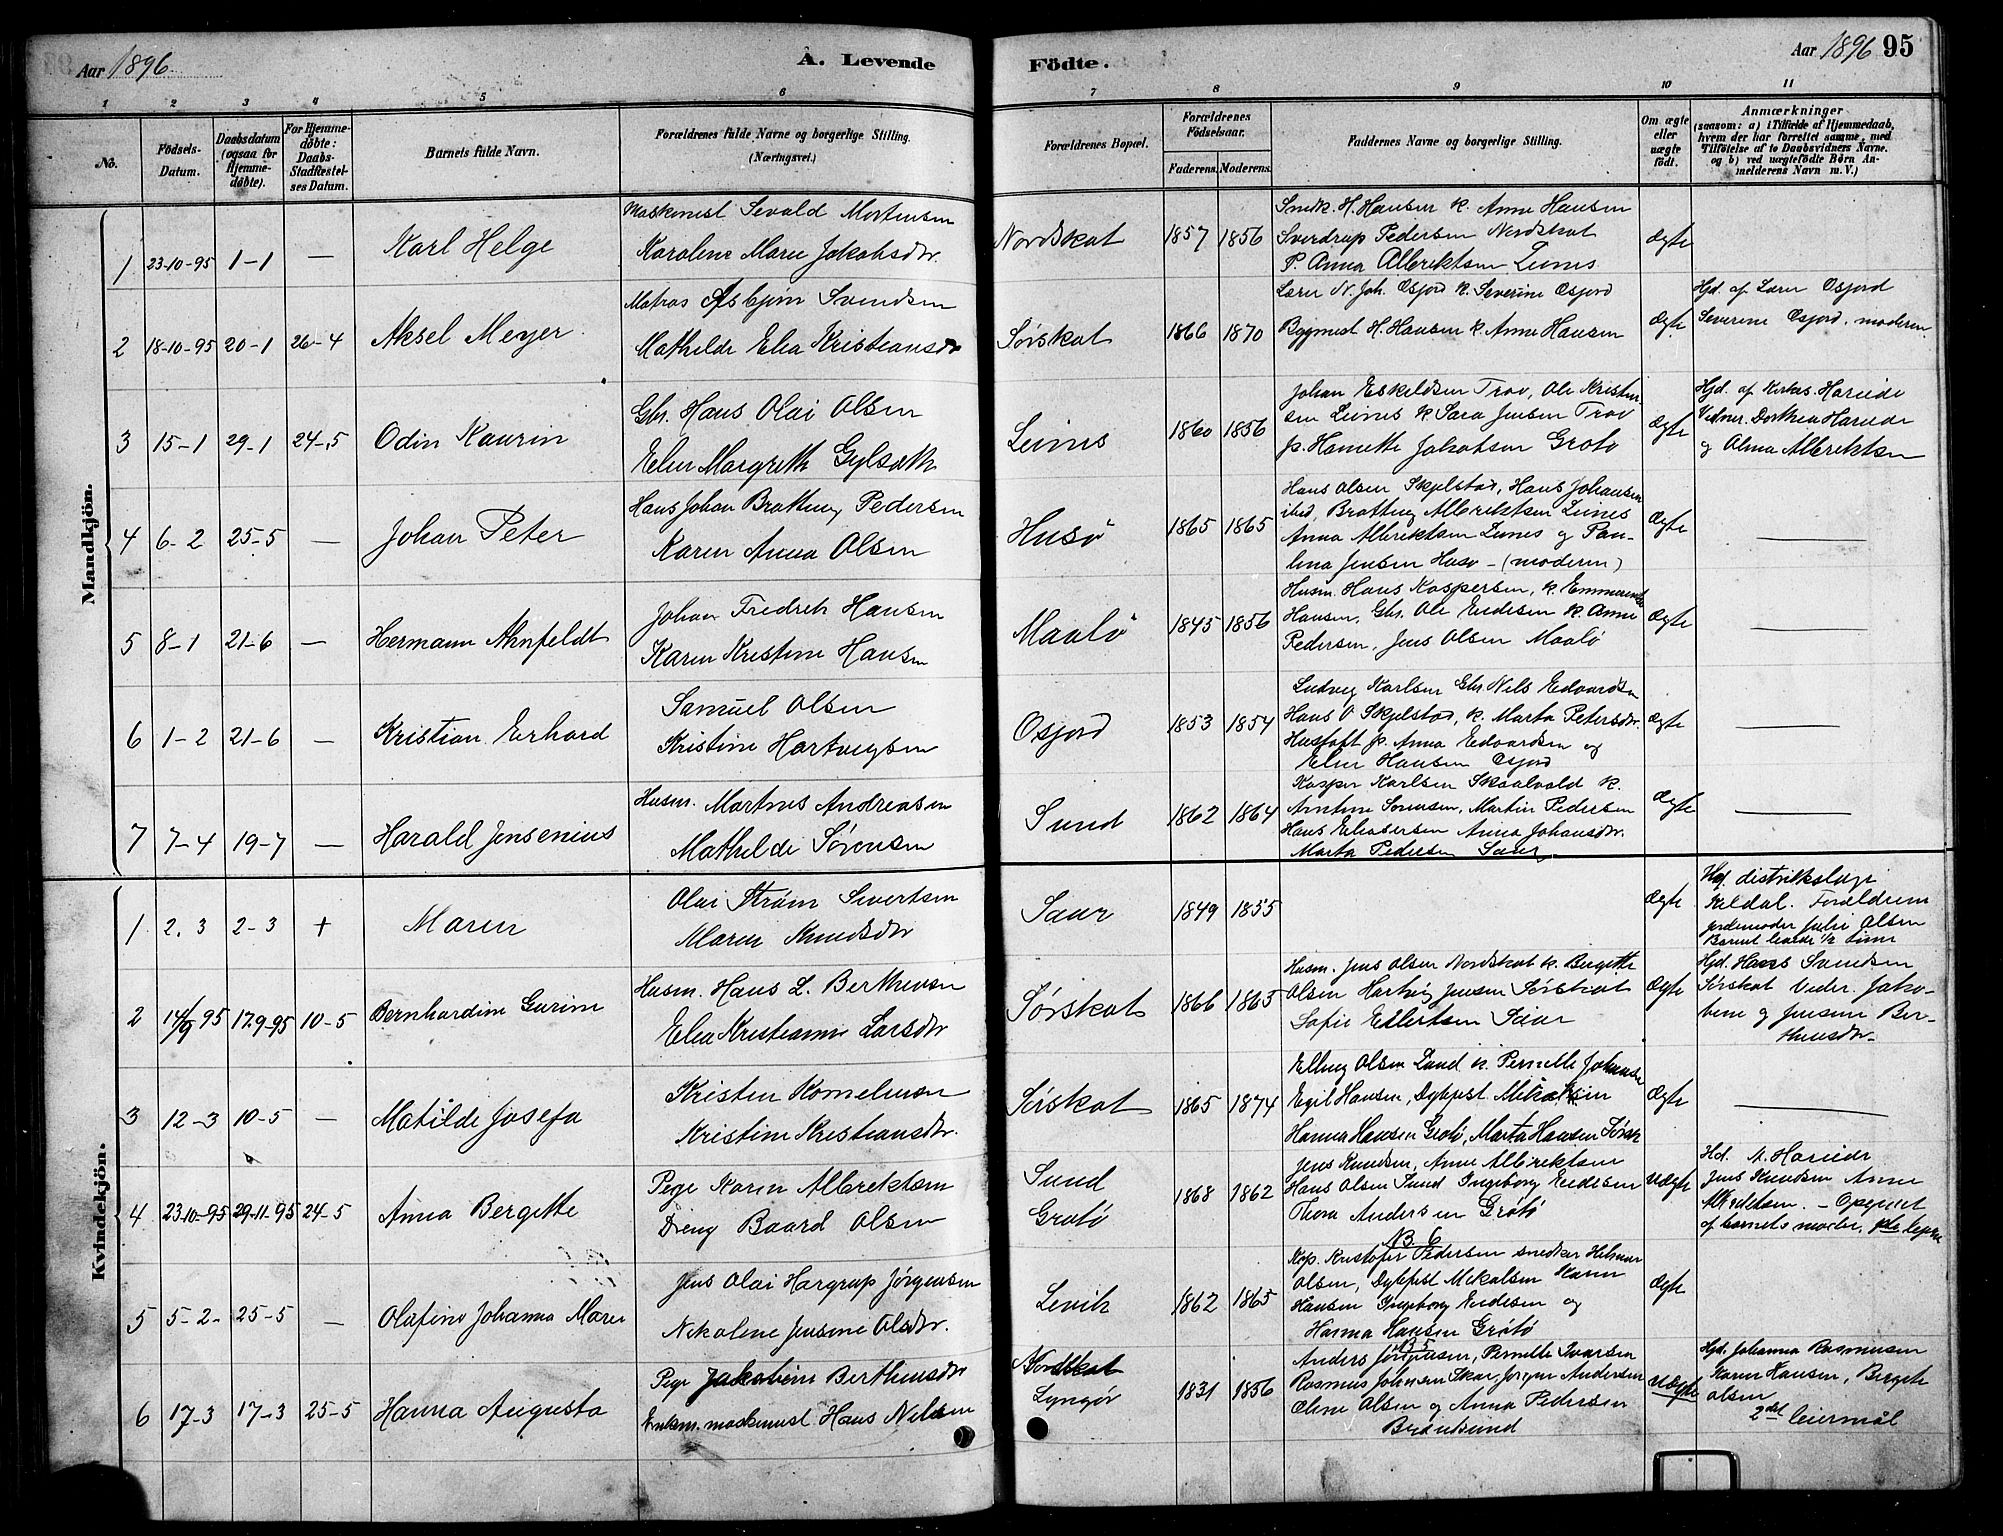 Aar 1896
A. Levende
Födte.
Aar 1896 95
1 2 3 4 5 6 7 8 9 10 11
No.
Födsels-
Datum.
Daabsdatum
(ogsaa for
Hjemme-
döbte).
For Hjemme-
döbte:
Daabs-
Stadfæstel-
ses Datum.
Barnets fulde Navn.
Forældrenes fulde Navne og borgerlige Stilling.
(Næringsvei.)
Forældrenes Bopæl.
Forældrenes
Födselsaar.
Faderens. Moderens.
Faddernes Navne og borgerlige Stilling.
Om ægte
eller
uægte
födt.
Anmærkninger
(saasom: a) i Tilfælde af Hjemmedaab,
hvem der har forrettet samme, med
Tilföielse af to Daabsvidners Navne.
og b) ved uægtefödte Börn An-
melderens Navn m. V.)
Mandkjön.
1 23-10-95 1-1 — Karl Helge
Maskinist Sevald Mortensen
Karoline Marie Jakobsdtr.
Nordskot 1857 1856
Snedk. H. Hansen k. Anne Hansen
Sverdrup Pedersen Nordskot
P. Anna Albriktsen Leines
Ægte
2 18-10-95 20-1 26-4 Aksel Meyer
Matros Asbjørn Svendsen
Mathilde Elea Kristiansdtr
Sørskot 1866 1870
Lærer N. Joh. Osjord k. Severine Osjord
Bygmest H. Hansen k. Anne Hansen
Ægte
Hjd. af Lærer Osjord
Severine Osjord, moderen
3 15-1 29-1 24-5 Odin Kaurin
Gbr. Hans Olai Olsen
Elen Margreth Gylseth
Leines 1860 1856
Johan Eskildsen Trov, Ole Kristen-
sen Leines k Sara Jensen Trov
p. Hanette Jakobsen Grotø
Ægte
Hjd. af Kirkes. Hareide
Vidner. Dorthea Hareide
og Alma Albriktsen
4 6-2 25-5 — Johan Peter
Hans Johan Brattung Pedersen
Karen Anna Olsen
Husø 1865 1865
Hans Olsen Skjelstad, Hans Johansen
ibid, Brattung Albriktsen Leines
Anna Albriktsen Leines og Pau-
lina Jensen Husø - (moderen)
Ægte
5 8-1 21-6 — Hermann Ahnfeldt
Johan Fredrik Hansen
Karen Kristine Hansen
Maalø 1845 1856
Husm. Hans Kaspersen, k. Emmerentse
Hansen, Gbr. Ole Endesen k. Anne
Pedersen, Jens Olsen Maalø
Ægte
6 1-2 21-6 — Kristian Erhard
Samuel Olsen
Kristine Hartvigsen
Osjord 1853 1854
Ludvig Karlsen Gbr. Nils Edvardsen
Hans O Skjelstad, k. Marta Petersdtr.
Hustoft p. Anna Edvardsen og
Elen Hansen Osjord
Ægte
7 7-4 19-7 — Harald Jensenius
Husm. Martnus Andreasen
Mathilde Sørensen
Sund 1862 1864
Kasper Karlsen Skaalvold k.
Arntine Sørensen, Martin Pedersen
Hans Eliasersen Anna Johansdtr.
Marta Pedersen Saur
Ægte
Kvindekjön.
1 2.3 2-3 + Maren
Olai Strøm Sivertsen
Maren Knudsdtr
Saur 1849 1855
Ægte
Hjd. distriktslæge
Kildal. Forældrene
jordemoder Julie Olsen
Barnet levede 1/2 time
2 14/9 95 17.9-95 10-5 Bernhardine Gurine
Husm. Hans L. Berthinsen
Elea Kristianne Larsdtr
Sørskot 1866 1865
Husm. Jens Olsen Nordskot k. Bergitte
Olsen Hartvig Jensen Sørskot
Sofie Edertsen Saar
Ægte
Hjd. Hans Svendsen
Sørskot Vidner. Jako-
bine og Jensine Ber-
thinsdtr.
3 12-3 10-5 — Matilde Josefa
Kristen Korneliusen
Kristine Kristiansdtr.
Sørskot 1865 1874
Elling Olsen Sund k. Pernille Johansen
Egil Hansen, Dybfest Mikalsen
Hanna Hansen Grøtø, Marta Hansen Sørsk
Ægte
4 23-10-95 29-11-95 24-5 Anna Bergitte
Pige Karen Albriktsen
Dreng Baard Olsen
Sund
Grøtø 1868 1862
Jens Knudsen, Anne Albriktsen
Hans Olsen Sund Ingeborg Endesen
Thora Andersen Grøtø
Uægte
Hd. M. Hareide
Jens Knudsen Anne
Albriktsen. - Opgivet
af barnets moder,
5 5-2- 25-5 — Olafine Johanna Marie
Jens Olai Hargrup Jørgensen
Nikoline Jensine Olsdtr.
Levik 1862 1865
NB. 6
Kop. Kristofer Pedersen snedker Hilmar
Olsen, Dybfest Mikalsen Karen
Hansen Ingeborg Endesen og
Hanna Hansen Grøtø
Ægte
6 17-3 17-3 25-5 Hanna Augusta
Pige Jakobine Berthinsdtr
Enkm. maskinist Hans Nilsen
Nordskot
Lyngør 1831 1856
NB 5
Anders Jørgensen, Pernille Ivarsen
Rasmus Johnsen Skar, Jørgen Andersen
Oline Olsen og Anna Pedersen
Brændsund
Uægte
Hjd. Johanna Rasmusen
Karen Hansen, Bergite
Olsen
2det leiermål